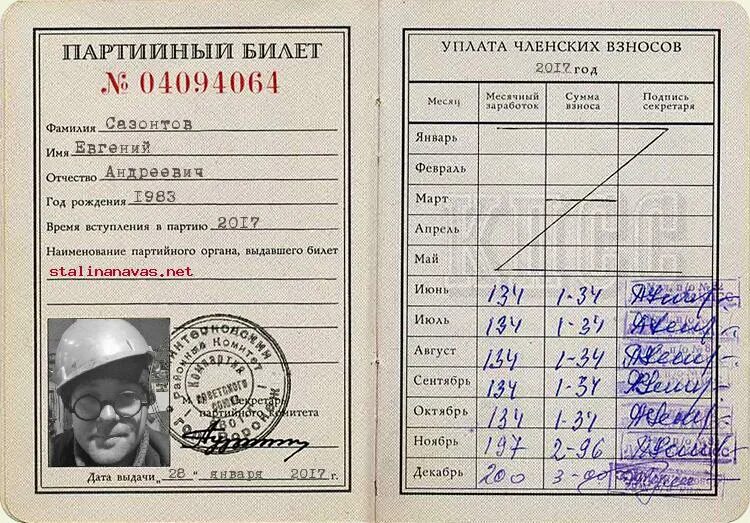 ПАРТИЙНЫЙ БИЛЕТ
№ 04094064
Фамилия Сазонтов
Имя Евгений
Отчество Андреевич
Год рождения 1983
Время вступления в партию 2017
Наименование партийного органа, выдавшего билет
stalinanavas.net
М П Секретарь
партийного комитета
Районный Комитет
Компартия
Советского
Союза
Дата выдачи „28“ января 2017 г.
УПЛАТА ЧЛЕНСКИХ ВЗНОСОВ
2017 год
Месяц Месячный заработок Сумма взноса Подпись секретаря
Январь
Февраль
Март
Апрель
Май
КПСС
Июнь 134 1-34
Июль 134 1-34
Август 134 1-34
Сентябрь 134 1-34
Октябрь 134 1-34
Ноябрь 197 2-96
Декабрь 200